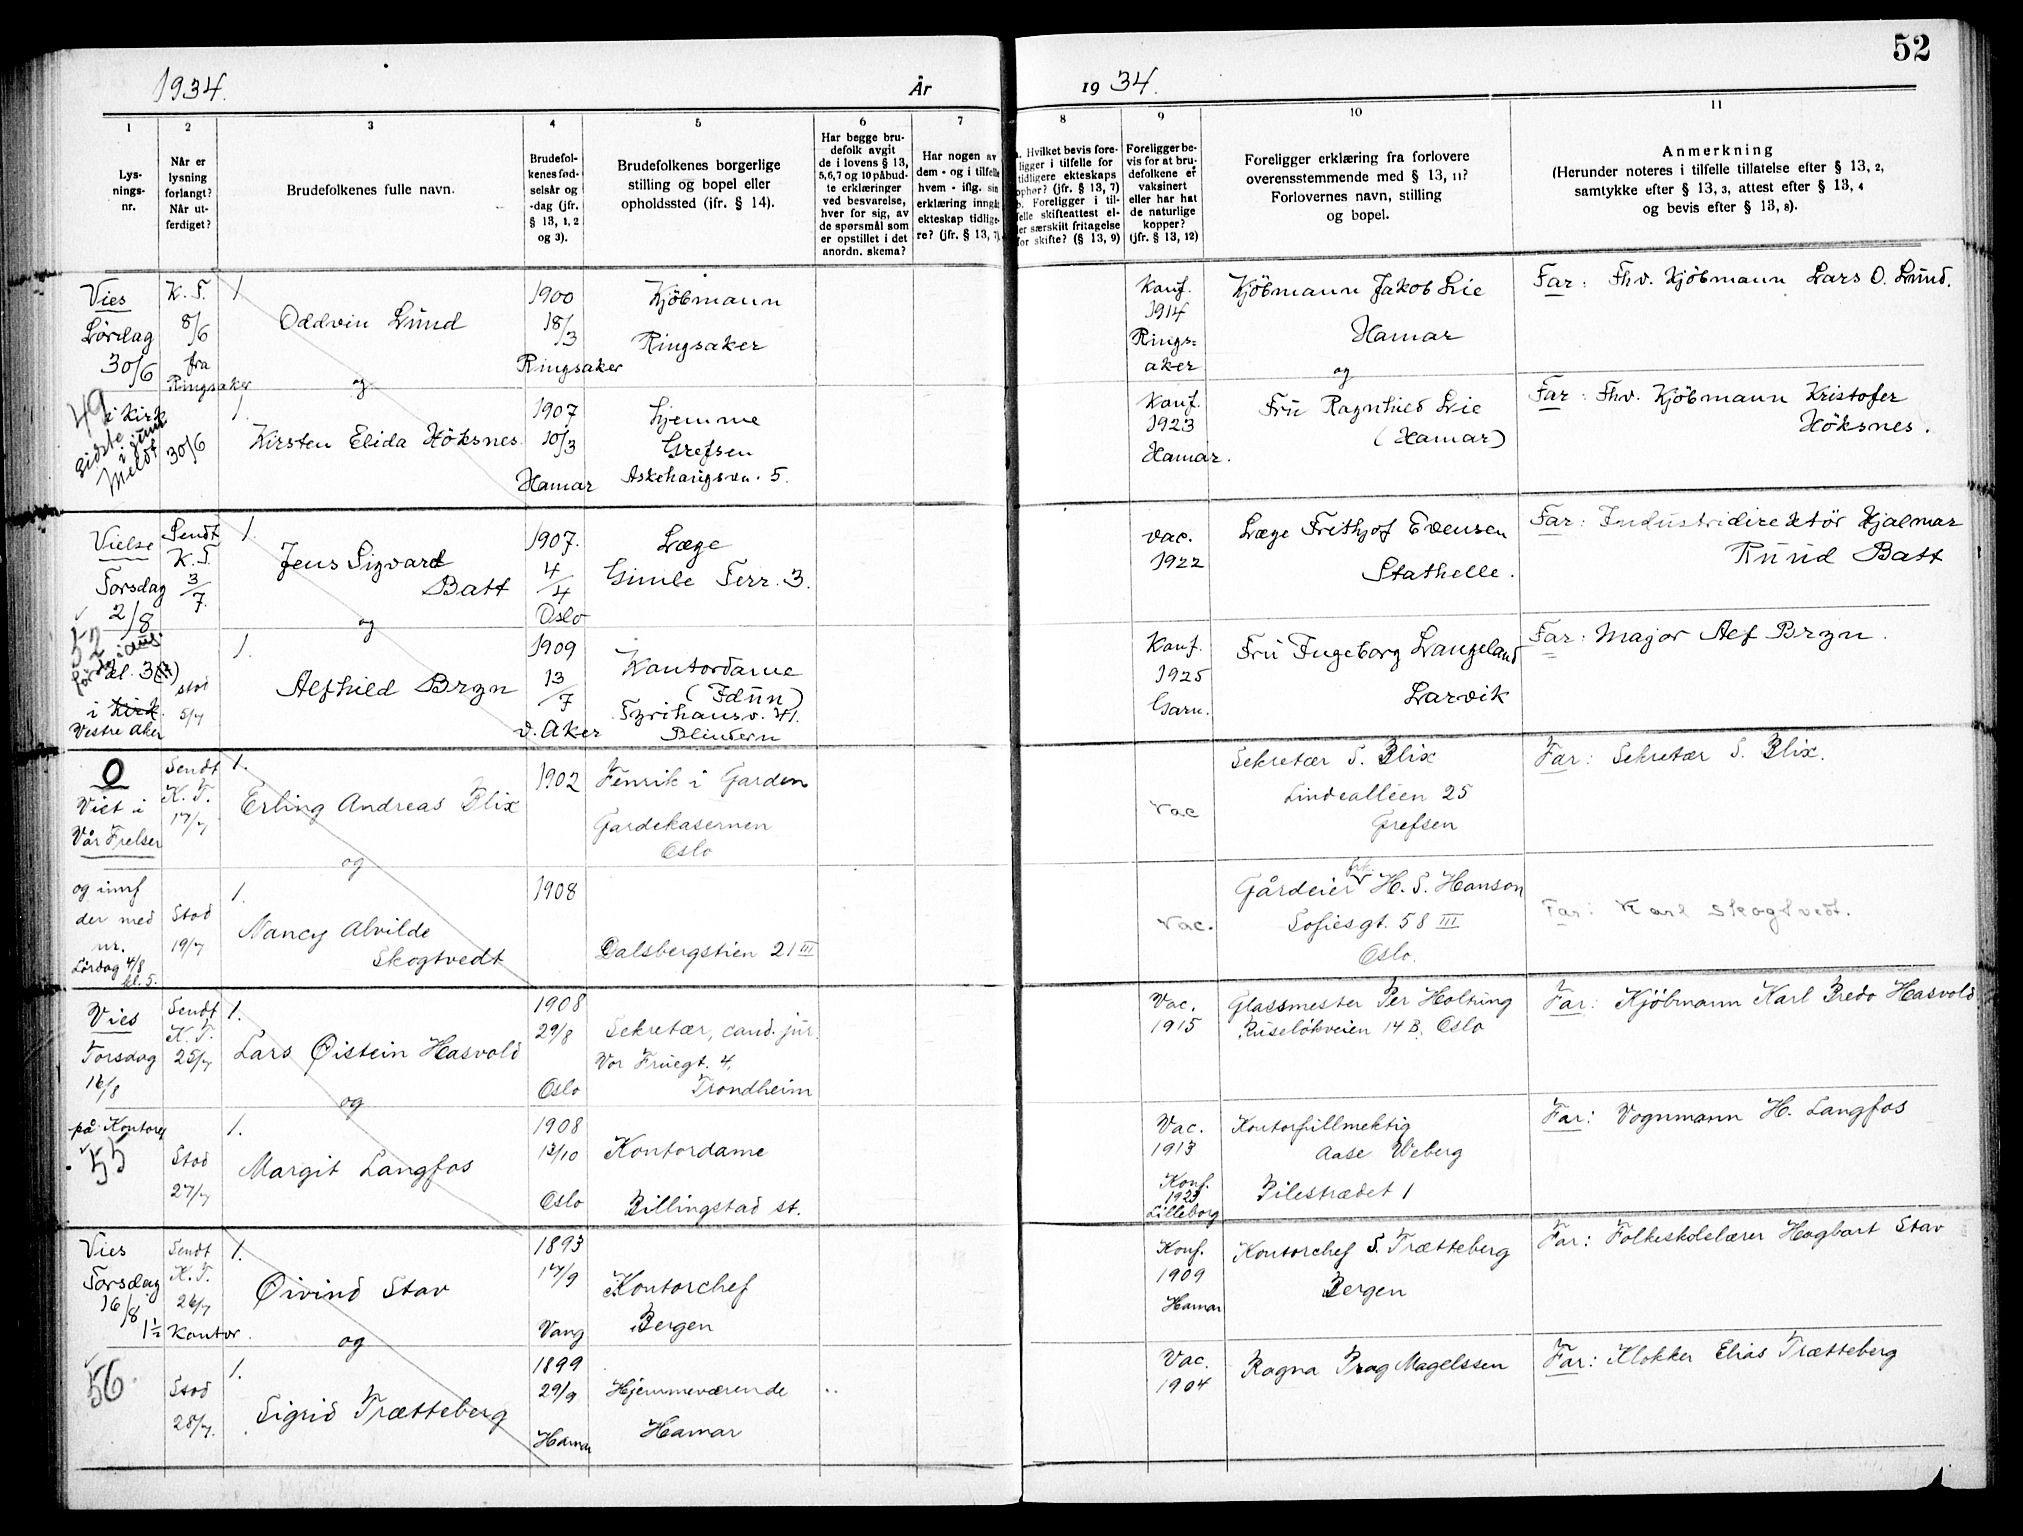 52
1934.
År
19 34.
1
2
3
4
5
6
7
8
9
10
11
Lys-
nings-
nr.
Når er
lysning
forlangt?
Når ut-
ferdiget?
Brudefolkenes fulle navn.
Brudefol-
kenes fød-
selsår og
-dag (jfr.
§ 13, 1, 2
og 3).
Brudefolkenes borgerlige
stilling og bopel eller
opholdssted (ifr. § 14).
Har begge bru-
defolk avgit
de i lovens § 13,
5,6,7 og 10 påbud-
te erklæringer
ved besvarelse,
hver for sig, av
de spørsmål som
er opstillet i det
anordn. skema?
Har nogen av
dem - og i tilfelle
hvem - iflg. sin
erklæring inngått
ekteskap tidlige-
re? (jfr. § 13, 7).
a. Hvilket bevis fore-
ligger i tilfelle for
tidligere ekteskaps
ophør? (jfr. § 13, 7)
b. Foreligger i til-
felle skifteattest el-
ler særskilt fritagelse
for skifte? (§ 13, 9)
Foreligger be-
vis for at bru-
defolkene er
vaksinert
eller har hat
de naturlige
kopper?
(jfr. § 13, 12)
Foreligger erklæring fra forlovere
overensstemmende med § 13, 11?
Forlovernes navn, stilling
og bopel.
Anmerkning
(Herunder noteres i tilfelle tillatelse efter § 13, 2,
samtykke efter § 13, 3, attest efter § 13, 4
og bevis efter § 13, 8).
Vies
Lördag
30/6
K. F.
8/6
fra
Ringsaker
1.
Oddvin Lund
og
1900
18/3
Ringsaker
Kjöbmann
Ringsaker
Konf.
1914
Rings=
aker
Kjöbmann Jakob Lie
Hamar
og
Far: Fhv. Kjöbmann Lars O. Lund.
49
i kirk
sidste
i juni
Meldt
30/6
1.
Kirsten Elida Höksnes
1907
10/3
Hamar
hjemme
Grefsen
Askehaugsvn. 5.
Konf.
1923
Hamar.
Fru Ragnhild Lie
(Hamar)
Far: Fhv. Kjöbmann Kristofer
Höksnes.
Vielse
Torsdag
2/8
Sendt
K. F.
3/7.
1.
Jens Sigvard
Batt
og
1907.
4/4
Oslo
Læge
Gimle Terr. 3.
Vac.
1922
Læge Frithjof Evensen
Stathelle.
Far: Industridirektör Hjalmar
Ruud Batt
52
kl. 3
i Kirk.
Vestre Aker
stod
5/7
1.
Alfhild Bryn
1909
13/7
V. Aker
Kontordame
(Idun)
Tyrihansv. 41.
Blindern
Konf.
1925
Garn.
Fru Ingeborg Langeland
Larvik
Far: Major Alf Bryn.
0
Viet i
Vår Frelser
Sendt
K. F.
17/7
1.
Erling Andreas Blix
og
1902
Fenrik i Garden
Gardekasernen
Oslo
Vac
Sekretær S. Blix
Lindealléen 25
Grefsen
Far: Sekretær S. Blix.
og innf
der med
nr.
Lördag 4/8
kl. 5.
Stod
19/7
1.
Nancy Alvilde
Skogtvedt
1908
Dalsbergstien 21 III
Vac.
Gårdeier frk. H. S. Hanson
Sofiesgt. 58 III
Oslo.
Far: Karl Skogtvedt.
Vies
Torsdag
16/8
Sendt
K. F.
25/7
1.
Lars Øistein Hasvold
og
1908
29/8
Oslo
Sekretær, cand. jur.
Vor Fruegt. 4,
Trondheim
Vac.
1915
Glassmester Per Holtung
Ruseløkveien 14 B, Oslo
Far: Kjöbmann Karl Bredo Hasvold
på Kontoret
55
Stod
27/7
1.
Margit Langfos
1908
13/10
Oslo
Kontordame
Billingstad st.
Vac.
1913
Konf.
1923
Lilleborg
Kontorfullmektig
Aase Weberg
Pilestrædet 1
Far: Vognmann H. Langfos
Vies
Torsdag
16/8
1½
Sendt
K. F.
26/7
Kontor.
1.
Øivind Stav
og
1893
17/9
Vang
Kontorchef
Bergen
Konf.
1909
Hamar
Kontorchef S. Trætteberg
Bergen
Far: Folkeskolelærer Hagbart Stav
56
Stod
28/7.
1.
Sigrid Trætteberg
1899
29/9
Hamar
Hjemmeværende
Hamar
Vac.
1904
Ragna Prag Magelssen
Far: Klokker Elias Trætteberg